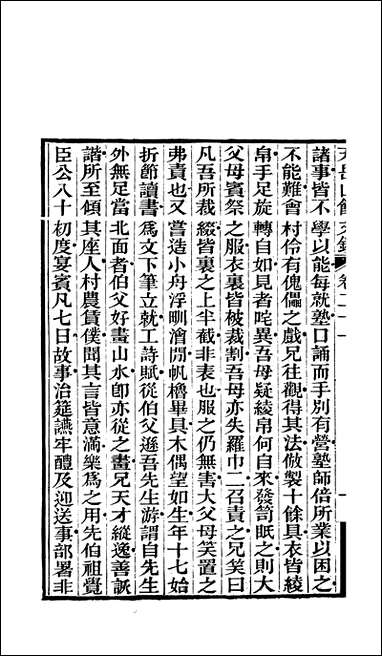 天岳山館文鈔 卷二十一
諸事皆不學以能每就塾口誦而手別有營塾師倍所業以困之
不能難會村伶有傀儡之戲兄往觀得其法倣製十餘具衣皆綾
帛手足旋轉自如見者咤異吾母疑綾帛何自來發笥眂之則大
父母賓祭之服衣裏皆被裁割吾母亦失羅巾二召責之兄笑曰
凡吾所裁綴皆裏之上半截非表也服之仍無害大父母笑置之
弗責也又嘗造小舟浮㽦澮閒帆櫓畢具木偶望如生年十七始
折節讀書為文下筆立就工詩賦從伯父遜吾先生游謂自先生
外無足當北面者伯父好畫山水卽亦從之畫兄天才縱逸善詼
諧所至傾其座人村農賃僕聞其言皆意滿樂為之用先伯祖覺
臣公八十初度宴賓凡七日故事治筵讌牢醴及迎送事部署非